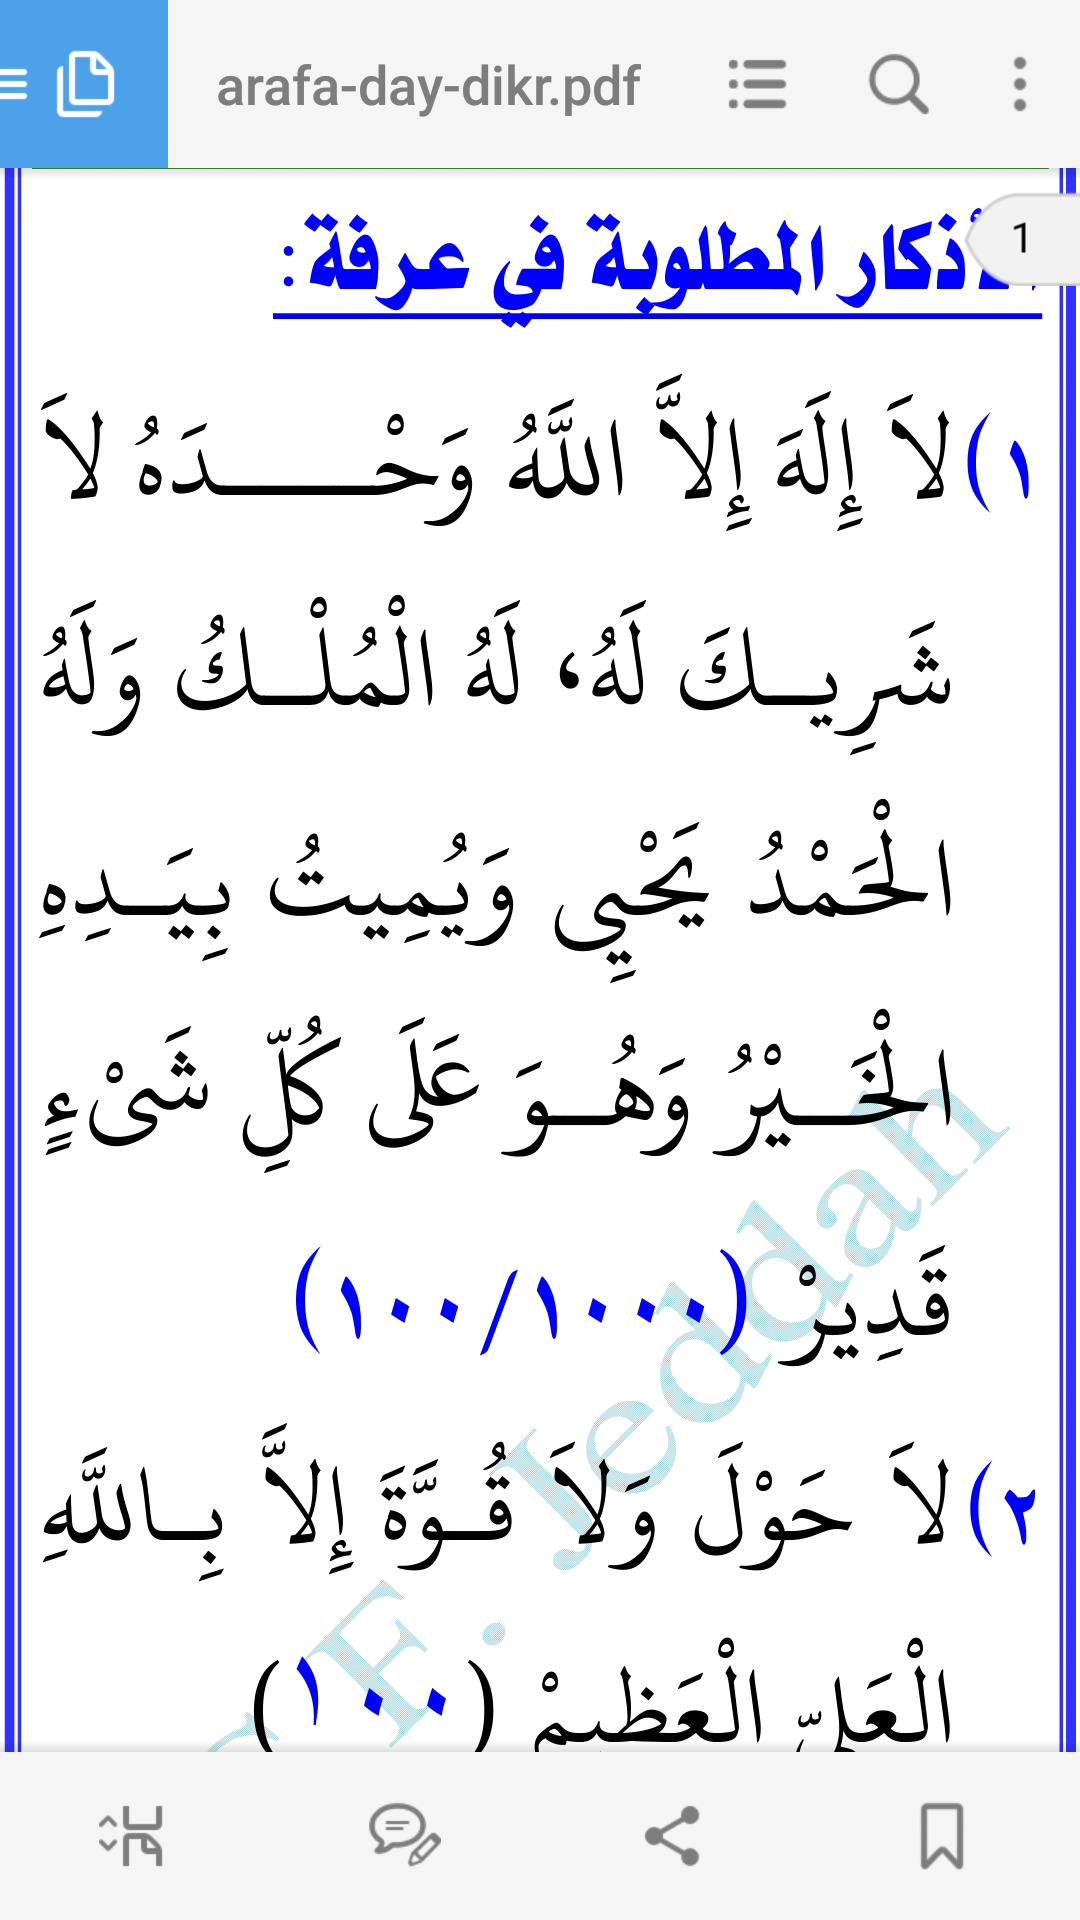 arafa-day-dikr.pdf
1
الأذكار المطلوبة في عرفة:
١) لاَ إِلَهَ إِلاَّ اللَّهُ وَحْـــــدَهُ لاَ
شَرِيـــكَ لَهُ، لَهُ الْمُلْـــكُ وَلَهُ
الْحَمْدُ يَحْيِي وَيُمِيتُ بِيَـــدِهِ
الْخَـــيْرُ وَهُـــوَ عَلَى كُلِّ شَىْءٍ
قَدِيرْ (١٠٠٠/١٠٠)
٢) لاَ حَوْلَ وَلاَ قُـــوَّةَ إِلاَّ بِـــاللَّهِ
الْعَلِيّ الْعَظِيمْ (١٠٠)
F. Jeddah